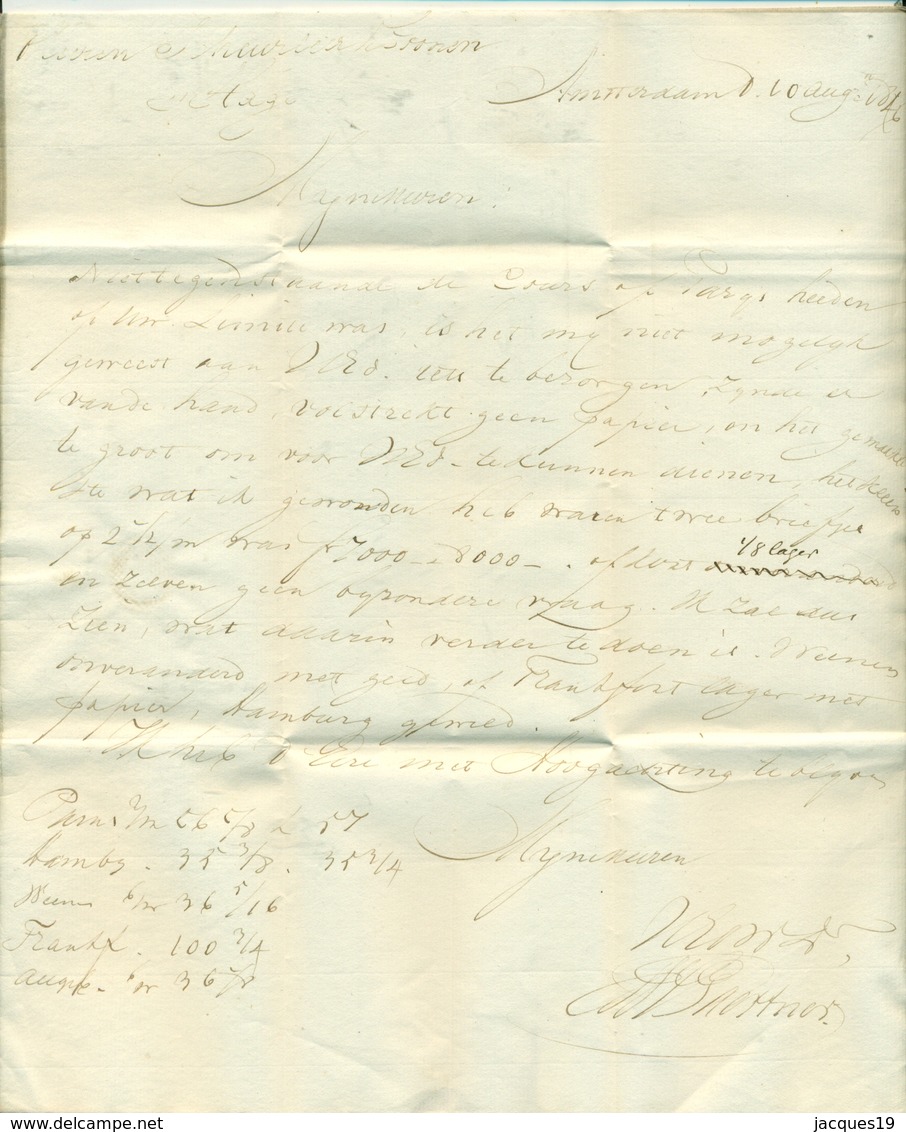 Heeren Scheurleer & Zoonen
's Hage
Amsterdam d. 10 Aug. 1846
Mynheeren!
Niettegenstaande de Cours op Parys heeden
op Uw Limite was, is het my niet mogelyk
geweest aan UEd. iets te bezorgen zynde er
van de hand volstrekt geen papier, en het gemaakte
te groot om voor UEd. te kunnen dienen, het klein
ste wat ik gevonden heb waren twee briefjes
op 2 /m was fr 7000 - 8000 -. ofdert
1/8 lager
en Zeeven geen byzondere vraag. Ik zal dus
zien, wat daarin verder te doen is. Weenen
onveranderd met geld, of Frankfort lager met
papier, Hamburg gevraagd.
Ik heb d' Eere met Hoogachting te volgen
Mynheeren
Parys 2/m 56 5/8 à 57
Hamby. 35 3/8. 35 3/4
Weenen 6/w 36 5/16
Frankf. 100 3/4
Augsb. 6/w 36 1/8
UEd DW Dr,
jacques19